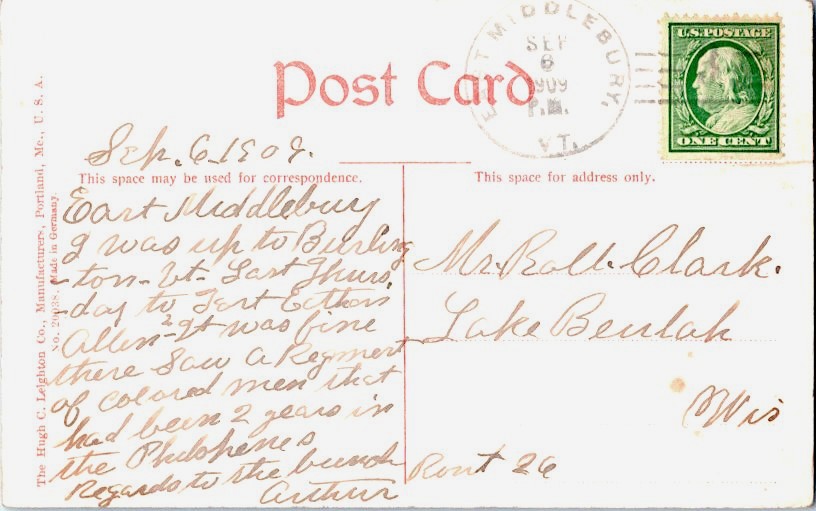 Post Card
EAST MIDDLEBURY,
SEP
6
1909
P.M.
VT.
U.S. POSTAGE
ONE CENT
Sep. 6 1909.
This space may be used for correspondence.
This space for address only.
East Middlebury
I was up to Burling
-ton - Vt - Last Thurs,
-day to Fort Eathan
Allen - It was fine
there Saw a Regment
of colored men that
had been 2 years in
the Philphenes
Regards to the bunch
Arthur
Mr. Clark.
Lake Beulah
Wis
Rout 26
The Hugh C. Leighton Co., Manufacturers, Portland, Me., U. S. A.
Made in Germany.